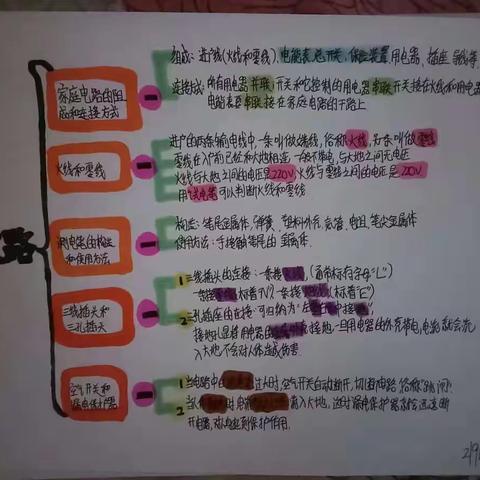 路
家庭电路的组
成和连接方式
组成:进户线(火线和零线)、电能表、总开关、保险装置、用电器、插座、导线等
连接方式:所有用电器并联,开关和它控制的用电器串联,开关接在火线和用电器
电能表要串联接在家庭电路的干路上
火线和零线
进户的两条输电线中,一条叫做端线,俗称火线,另一条叫做零线
零线在入户前已经和大地相连,一般不带电,与大地之间无电压
火线与大地之间的电压是220V,火线与零线之间的电压是220V
用试电笔可以判断火线和零线
测电笔的构造
和使用方法
构造:笔尾金属体、弹簧、塑料外壳、氖管、电阻、笔尖金属体
使用方法:手接触笔尾的金属体
三线插头和
三孔插头
1 三线插头的连接:一条接火线,(通常标有字母"L")
一条接零线(标着"N")一条接(标着"E")
2 三孔插座的连接:可归纳为"左零右火中接地"
接地:是将用电器的接地,一旦用电器的外壳带电,电能就会流
入大地,不会对人体造成伤害
空气开关和
漏电保护器
1 当电路中的过大时,空气开关自动断开,切断电路,俗称"跳闸"
2 流入大地,这时漏电保护器就会迅速断
开电器,对电路起到保护作用.